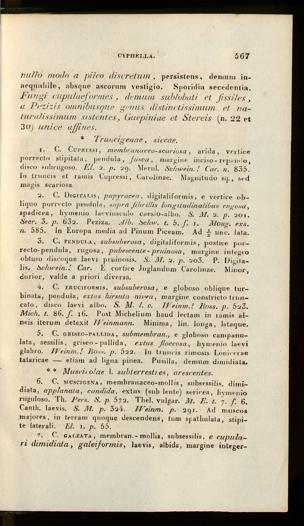 CYPHELLA. 567
nullo modo a pileo discretum, persistens, demum in-
aequabile, absque ascorum vestigio. Sporidia secedentia.
Fungi cupulaeformes, demum sublobati et fissiles,
a Pezizis omnibusque genus distinctissimum et na-
turalissimum sistentes, Guepiniae et Stereis (n. 22 et
30) unice affines.
* Truncigenae, siccae.
1. C. CUPRESSI, membranaceo-scariosa, arida, vertice
porrecto stipitata, pendula, fusca, margine inciso-repando,
disco subrugoso. El. 2. p. 29. Merul. Schwein.! Car. n. 835.
In truncis et ramis Cupressi, Carolinae. Magnitudo sq., sed
magis scariosa.
2. C. DIGITALIS, papyracea, digitaliformis, e vertice ob-
liquo porrecto pendula, supra fibrillis longitudinalibus rugosa,
spadicea, hymenio laeviusculo caesio-albo. S. M. 2. p. 201.
Secr. 3. p. 632. Peziza. Alb. Schw. t. 5. f. 1. Moug. exs.
n. 585. In Europa media ad Pinum Piceam. Ad ½ unc. lata.
3. C. PENDULA, subsuberosa, digitaliformis, postice por-
recto-pendula, rugosa, pubescente-pruinosa, margine integro
obtuso discoque laevi pruinosis. S. M. 2. p. 203. P. Digita-
lis, Schwein.! Car. E cortice Juglandum Carolinae. Minor,
durior, valde a priori diversa.
4. C. FRUCIFORMIS, subsuberosa, e globoso oblique tur-
binata, pendula, extus hirsuta nivea, margine constricto trun-
cato, disco laevi albo. S. M. l. c. Weinm.! Ross. p. 523.
Mich. t. 86. f. 16. Post Michelium haud lectam in ramis al-
neis iterum detexit Weinmann. Minima, lin. longa, lataque.
5. C. GRISEO-PALLIDA, submembran., e globoso campanu-
lata, sessilis, griseo-pallida, extus floccosa, hymenio laevi
glabro. Weinm.! Ross. p. 522. In truncis rimosis Lonicerae
tataricae — etiam ad ligna pinea. Pusilla, demum dimidiata.
** Muscicolae l. subterrestres, arescentes.
6. C. MUSCIGENA, membranaceo-mollis, subsessilis, dimi-
diata, applanata, candida, extus (sub lente) sericea, hymenio
ruguloso. Th. Pers. S. p. 572. Thel. vulgar. M. E. t. 7. f. 6.
Canth. laevis, S. M. p. 324. Weinm. p. 291. Ad muscos
majores, in terram quoque descendens, tum spathulata, stipi-
te laterali. El. 1. p. 55.
7. C. GALEATA, membran.-mollis, subsessilis, e cupula-
ri dimidiata, galeiformis, laevis, albida, margine integer-